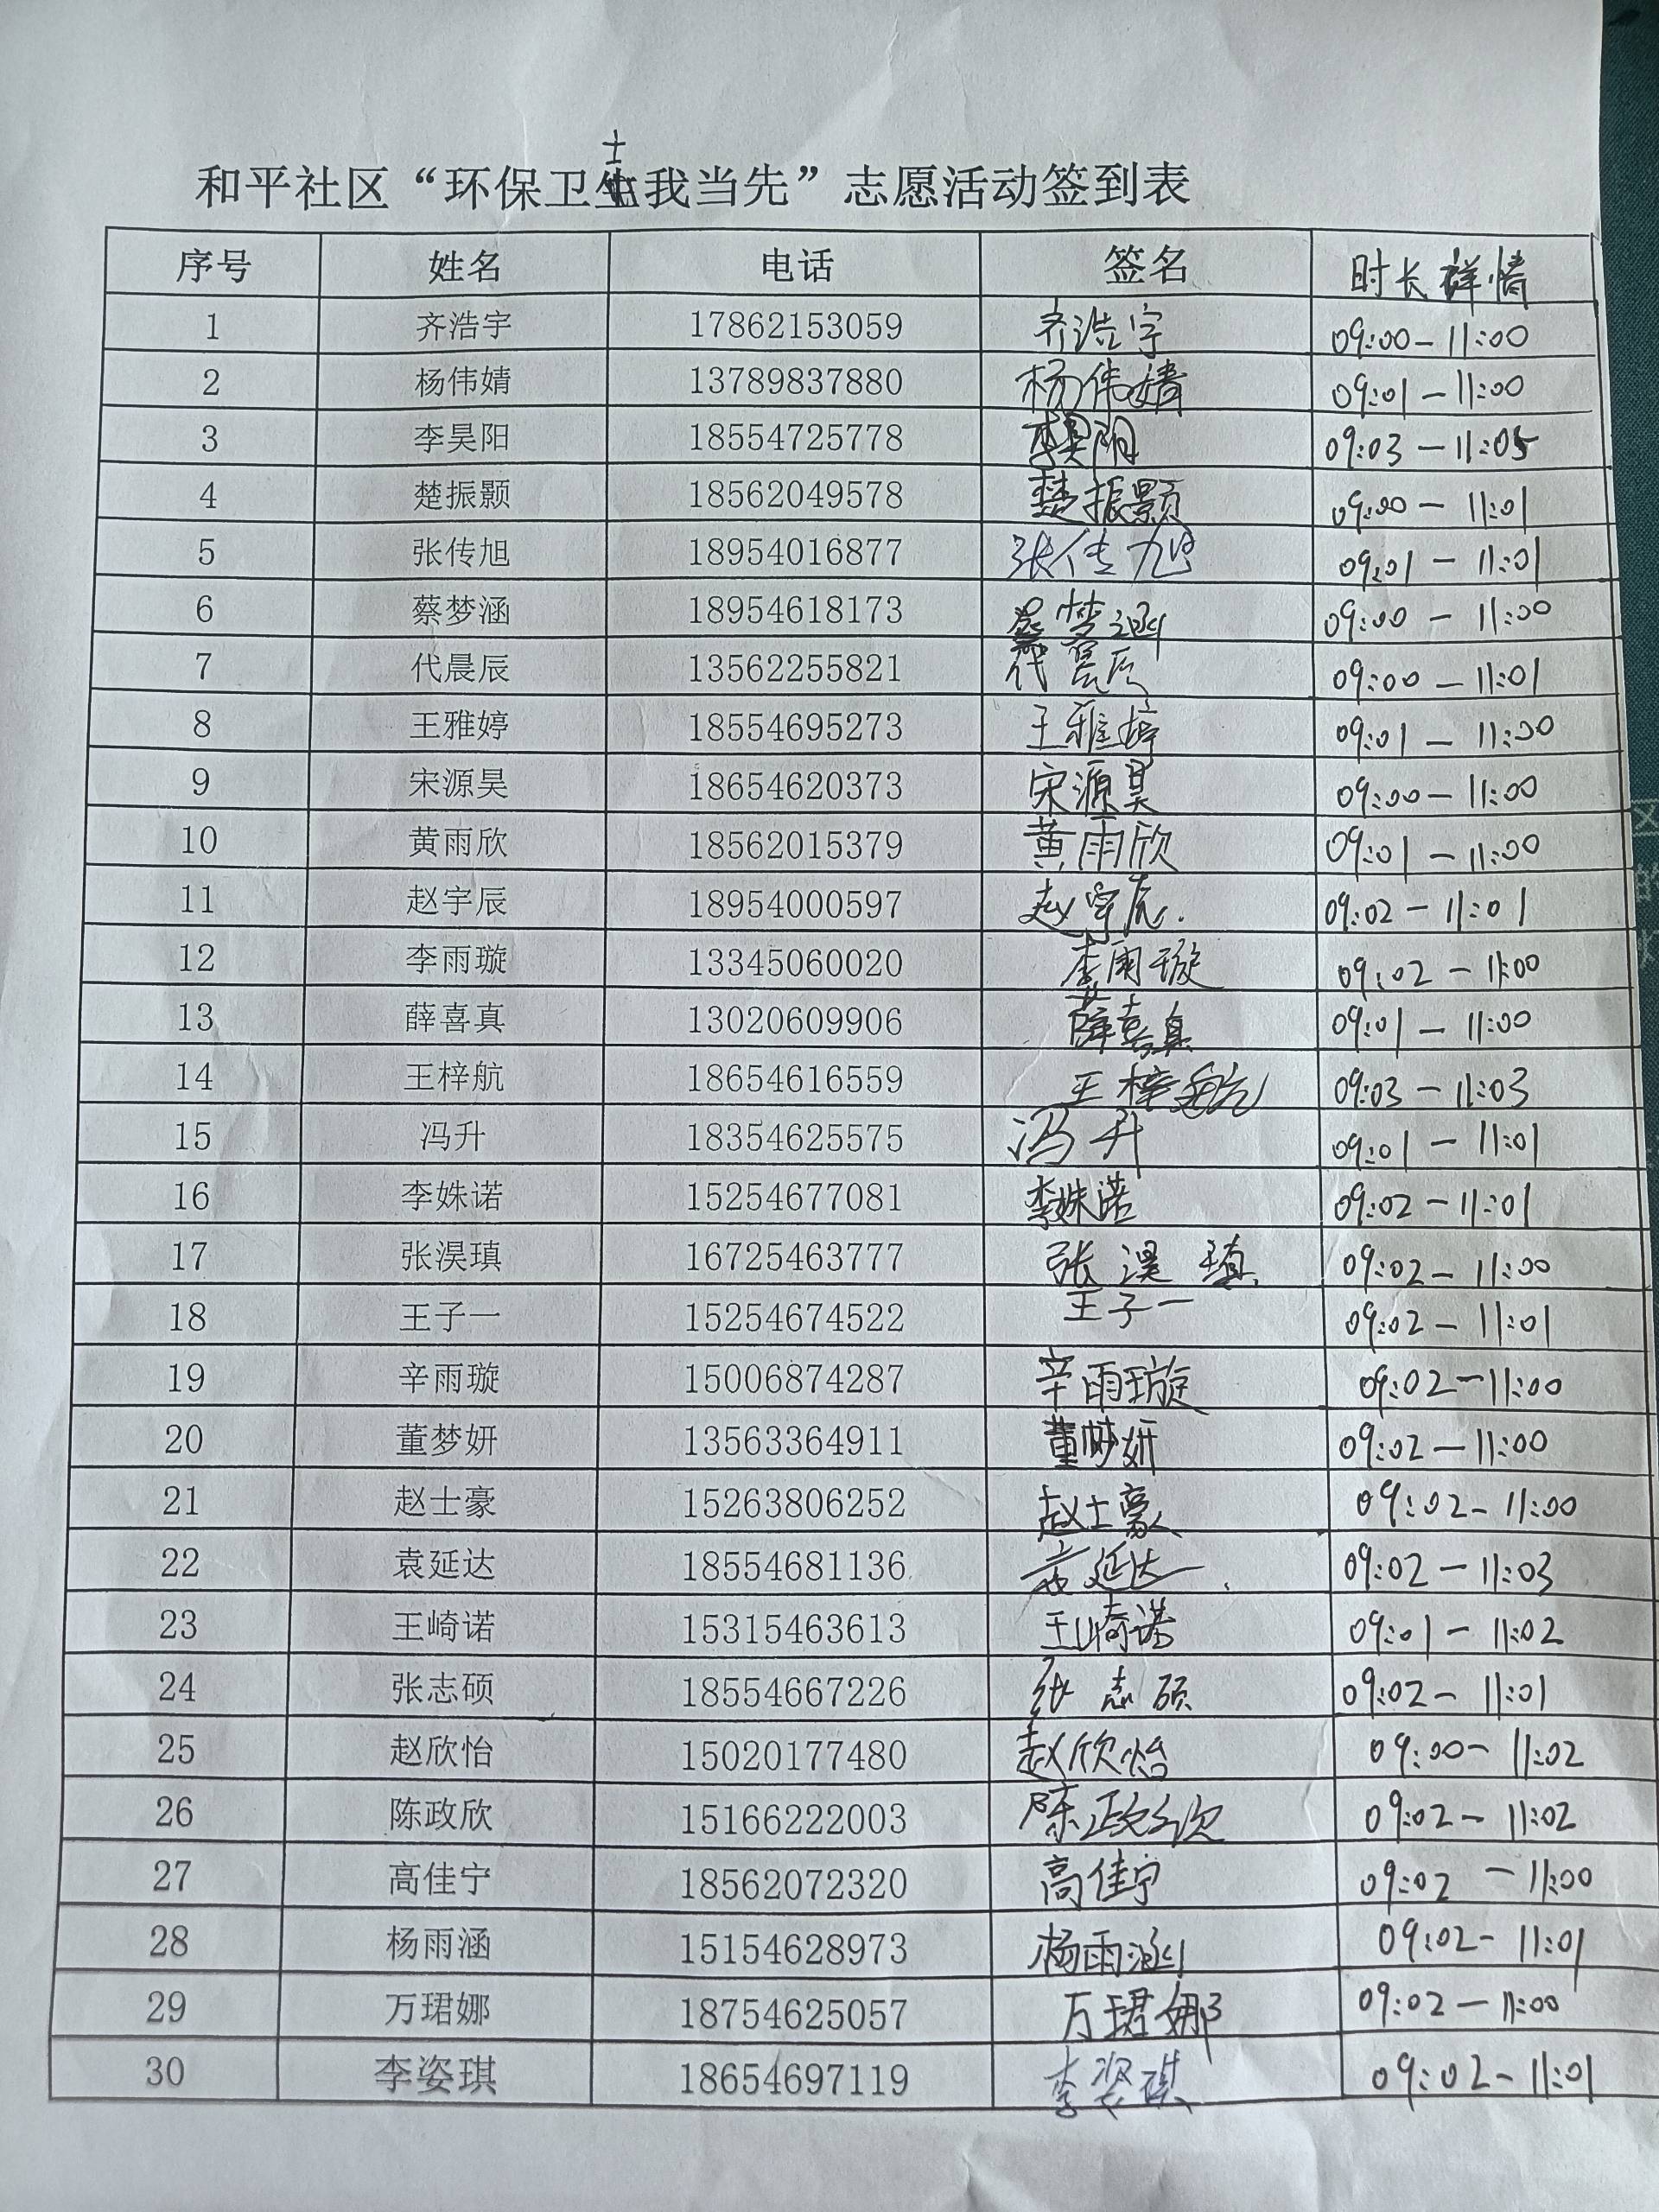 士
和平社区“环保卫生我当先”志愿活动签到表
序号 姓名 电话 签名 时长详情
1 齐浩宇 17862153059 齐浩宇 09:00-11:00
2 杨伟婧 13789837880 杨伟婧 09:01-11:00
3 李昊阳 18554725778 李昊阳 09:03-11:05
4 楚振颢 18562049578 楚振颢 09:00-11:01
5 张传旭 18954016877 张传旭 09:01-11:01
6 蔡梦涵 18954618173 蔡梦涵 09:00-11:00
7 代晨辰 13562255821 代晨辰 09:00-11:01
8 王雅婷 18554695273 王雅婷 09:01-11:00
9 宋源昊 18654620373 宋源昊 09:00-11:00
10 黄雨欣 18562015379 黄雨欣 09:01-11:00
11 赵宇辰 18954000597 赵宇辰. 09:02-11:01
12 李雨璇 13345060020 李雨璇 09:02-11:00
13 薛喜真 13020609906 薛喜真 09:01-11:00
14 王梓航 18654616559 王梓航 09:03-11:03
15 冯升 18354625575 冯升 09:01-11:01
16 李姝诺 15254677081 李姝诺 09:02-11:01
17 张淏瑱 16725463777 张淏瑱 09:02-11:00
18 王子一 15254674522 王子一 09:02-11:01
19 辛雨璇 15006874287 辛雨璇 09:02-11:00
20 董梦妍 13563364911 董梦妍 09:02-11:00
21 赵士豪 15263806252 赵士豪 09:02-11:00
22 袁延达 18554681136 袁延达 09:02-11:03
23 王崎诺 15315463613 王崎诺 09:01-11:02
24 张志硕 18554667226 张志硕 09:02-11:01
25 赵欣怡 15020177480 赵欣怡 09:00-11:02
26 陈政欣 15166222003 陈政欣 09:02-11:02
27 高佳宁 18562072320 高佳宁 09:02-11:00
28 杨雨涵 15154628973 杨雨涵 09:02-11:01
29 万珺娜 18754625057 万珺娜 09:02-11:00
30 李姿琪 18654697119 李姿琪 09:02-11:01
区
的